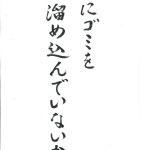 にゴミを
溜め込んでいないか